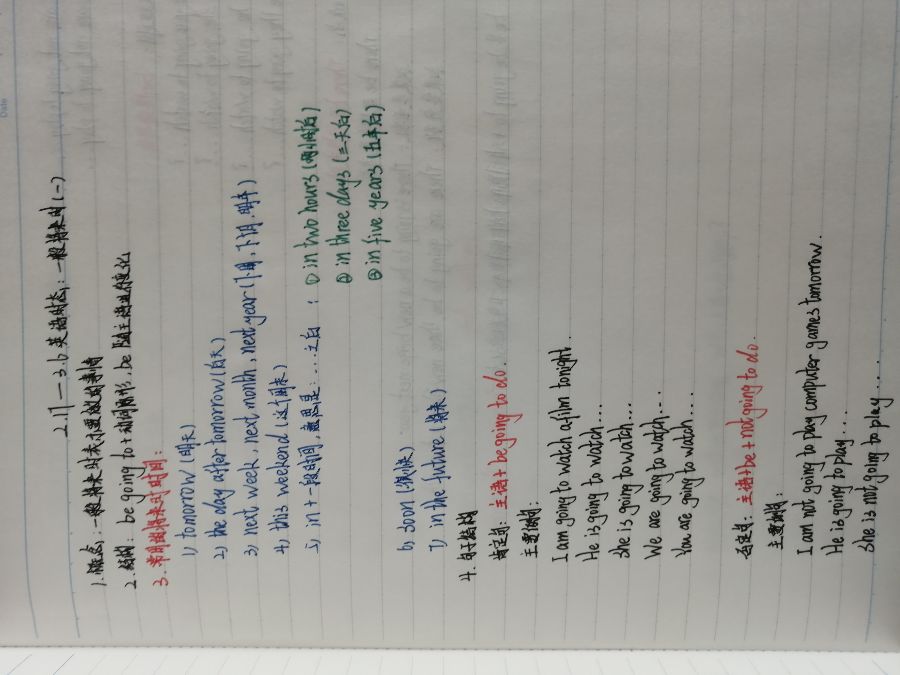 2.17—3.6 英语时态:一般将来时(一)
1. 概念:一般将来时表示要做的事情
2. 结构:be going to + 动词原形,be 随主语进行变化
3. 常用的将来时时间:
1) tomorrow (明天)
2) the day after tomorrow (后天)
3) next week, next month, next year (下周,下个月,明年)
4) this weekend (这个周末)
5) in + 一段时间,意思是:...之后:① in two hours (两小时后)
② in three days (三天后)
③ in five years (五年后)
6) soon (很快)
7) in the future (将来)
4. 句子结构
肯定句:主语+be going to do.
主要结构:
I am going to watch a film tonight.
He is going to watch....
She is going to watch....
We are going to watch....
You are going to watch....
否定句:主语+be+not going to do.
主要结构:
I am not going to play computer games tomorrow.
He is going to play....
She is not going to play....